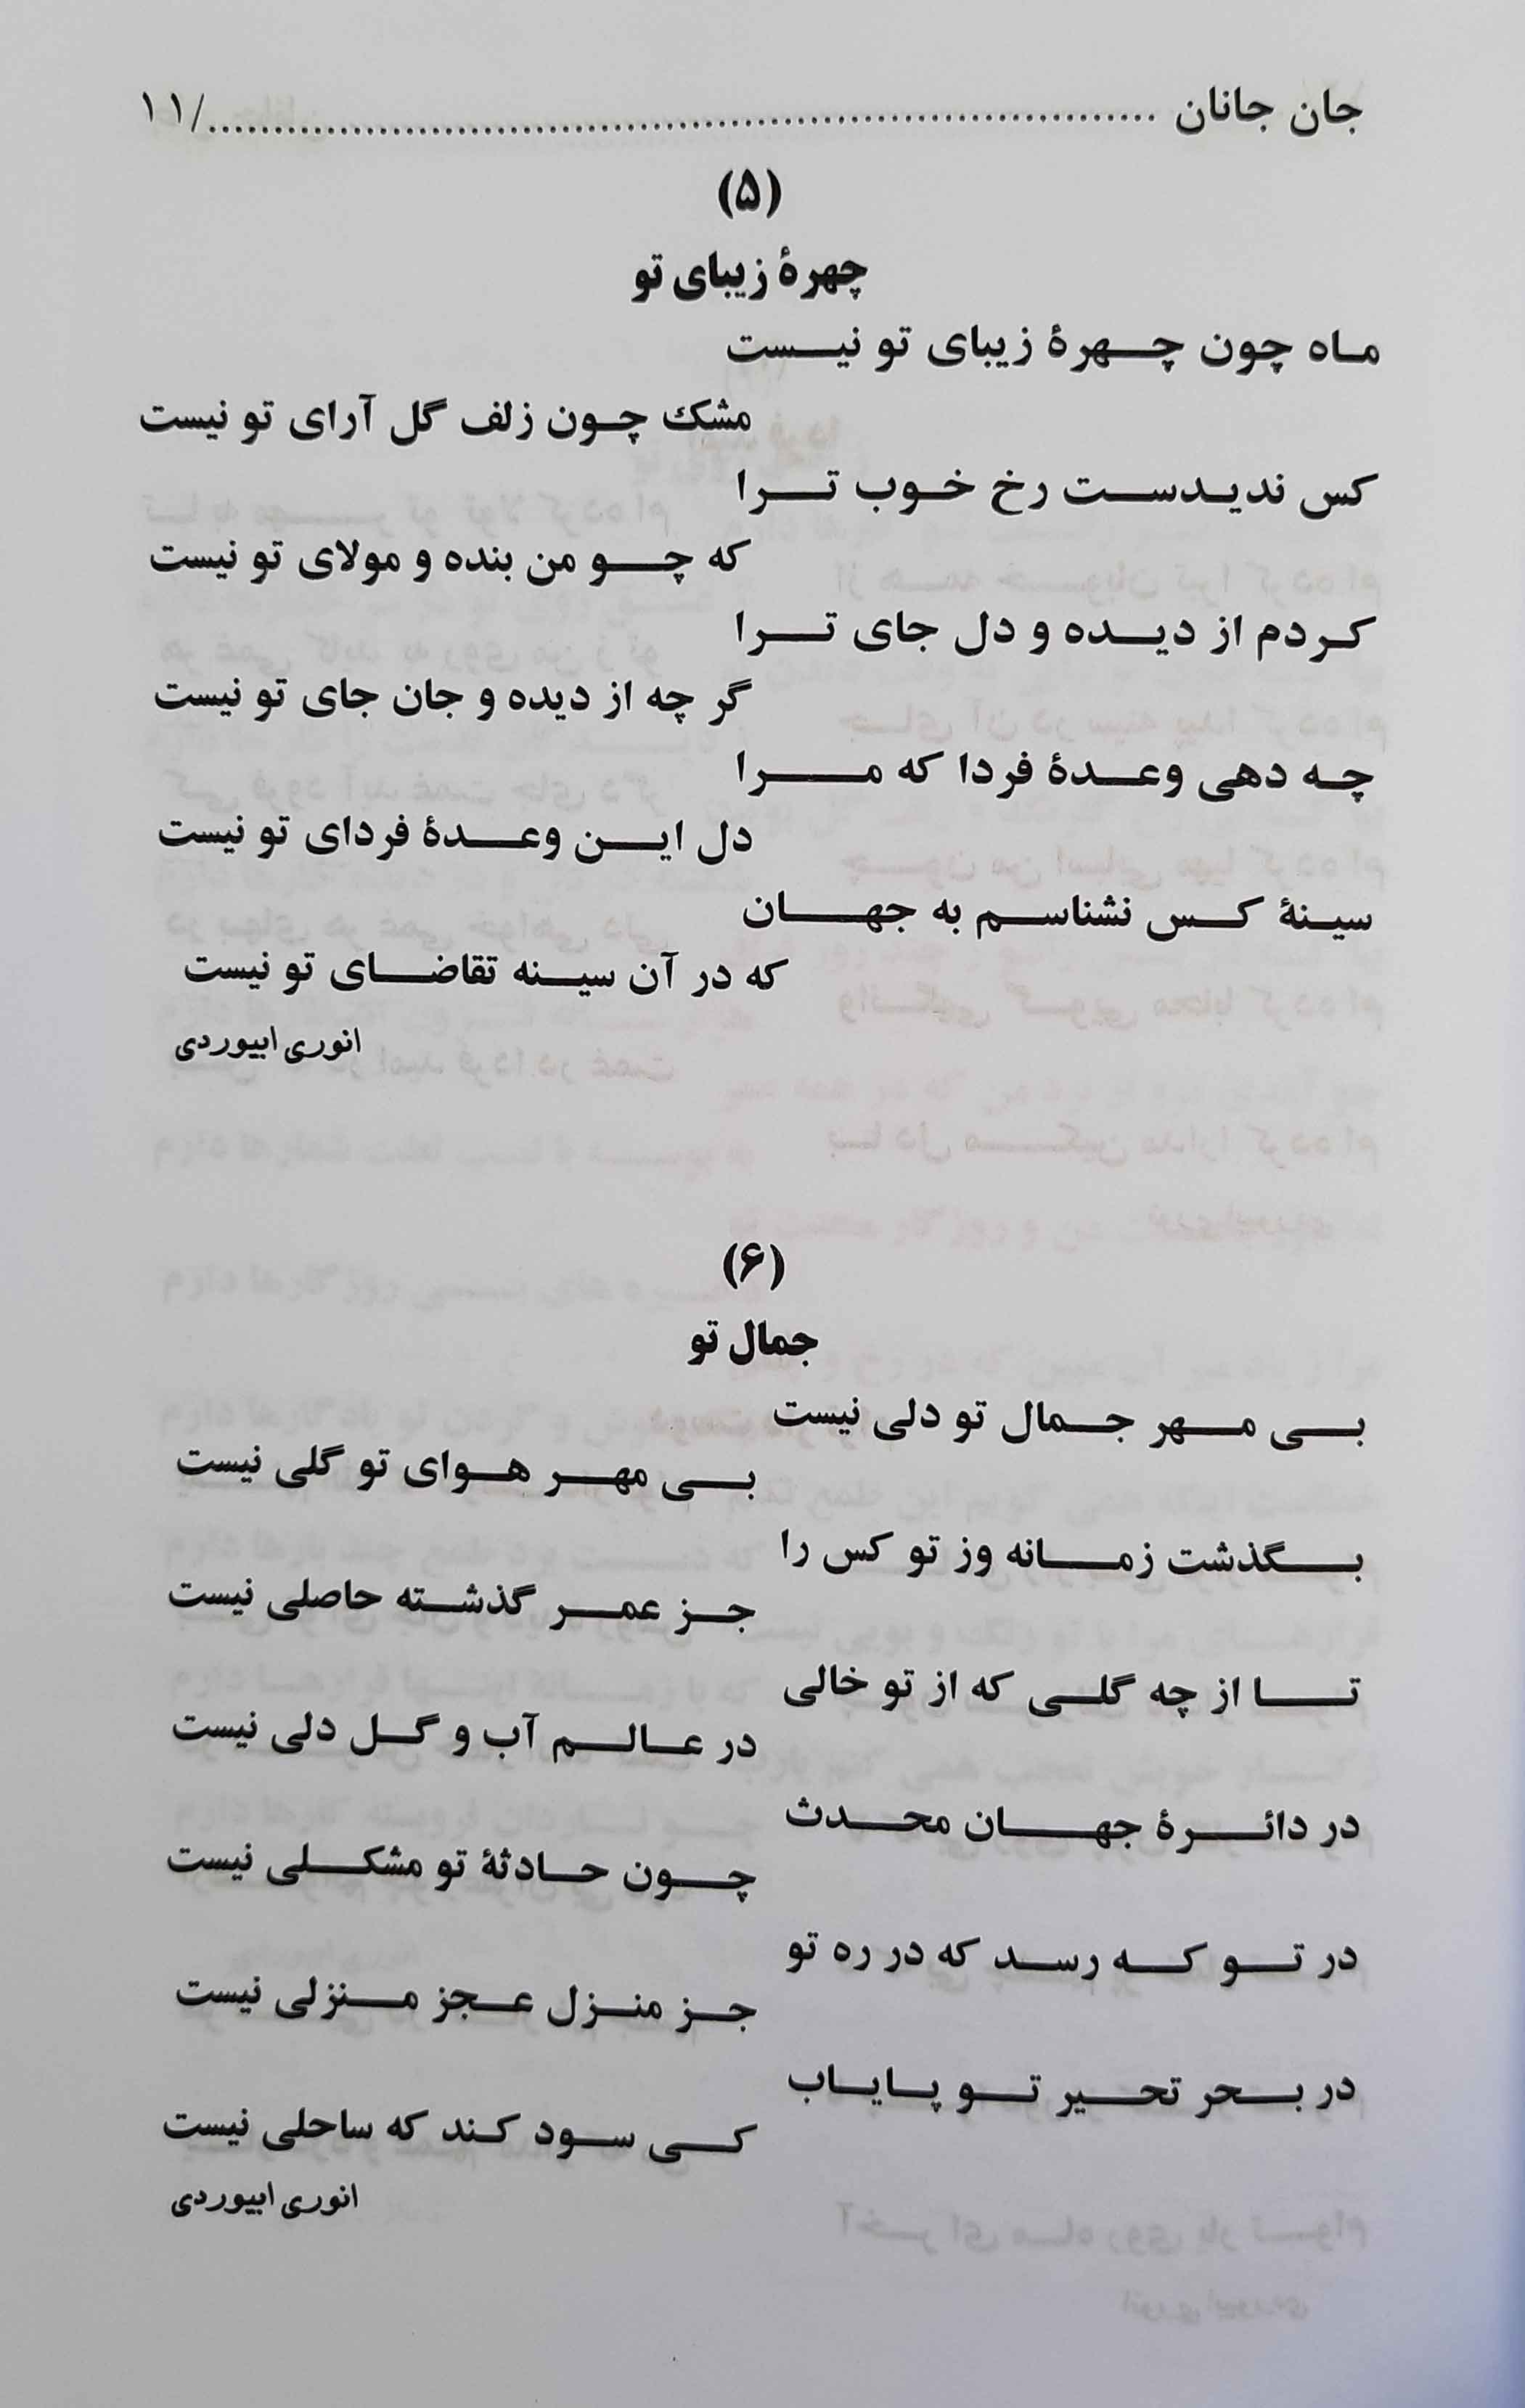 جان جانان ......................................................................../۱۱
(۵)
چهرهٔ زیبای تو
ماه چون چهرهٔ زیبای تو نیست
مشک چون زلف گل آرای تو نیست
کس ندیدست رخ خوب ترا
که چو من بنده و مولای تو نیست
کردم از دیده و دل جای ترا
گر چه از دیده و جان جای تو نیست
چه دهی وعدهٔ فردا که مرا
دل این وعدهٔ فردای تو نیست
سینهٔ کس نشناسم به جهان
که در آن سینه تقاضای تو نیست
انوری ابیوردی
(۶)
جمال تو
بی مهر جمال تو دلی نیست
بی مهر هوای تو گلی نیست
بگذشت زمانه وز تو کس را
جز عمر گذشته حاصلی نیست
تا از چه گلی که از تو خالی
در عالم آب و گل دلی نیست
در دائرهٔ جهان محدث
چون حادثهٔ تو مشکلی نیست
در تو که رسد که در ره تو
جز منزل عجز منزلی نیست
در بحر تحیر تو پایاب
کی سود کند که ساحلی نیست
انوری ابیوردی